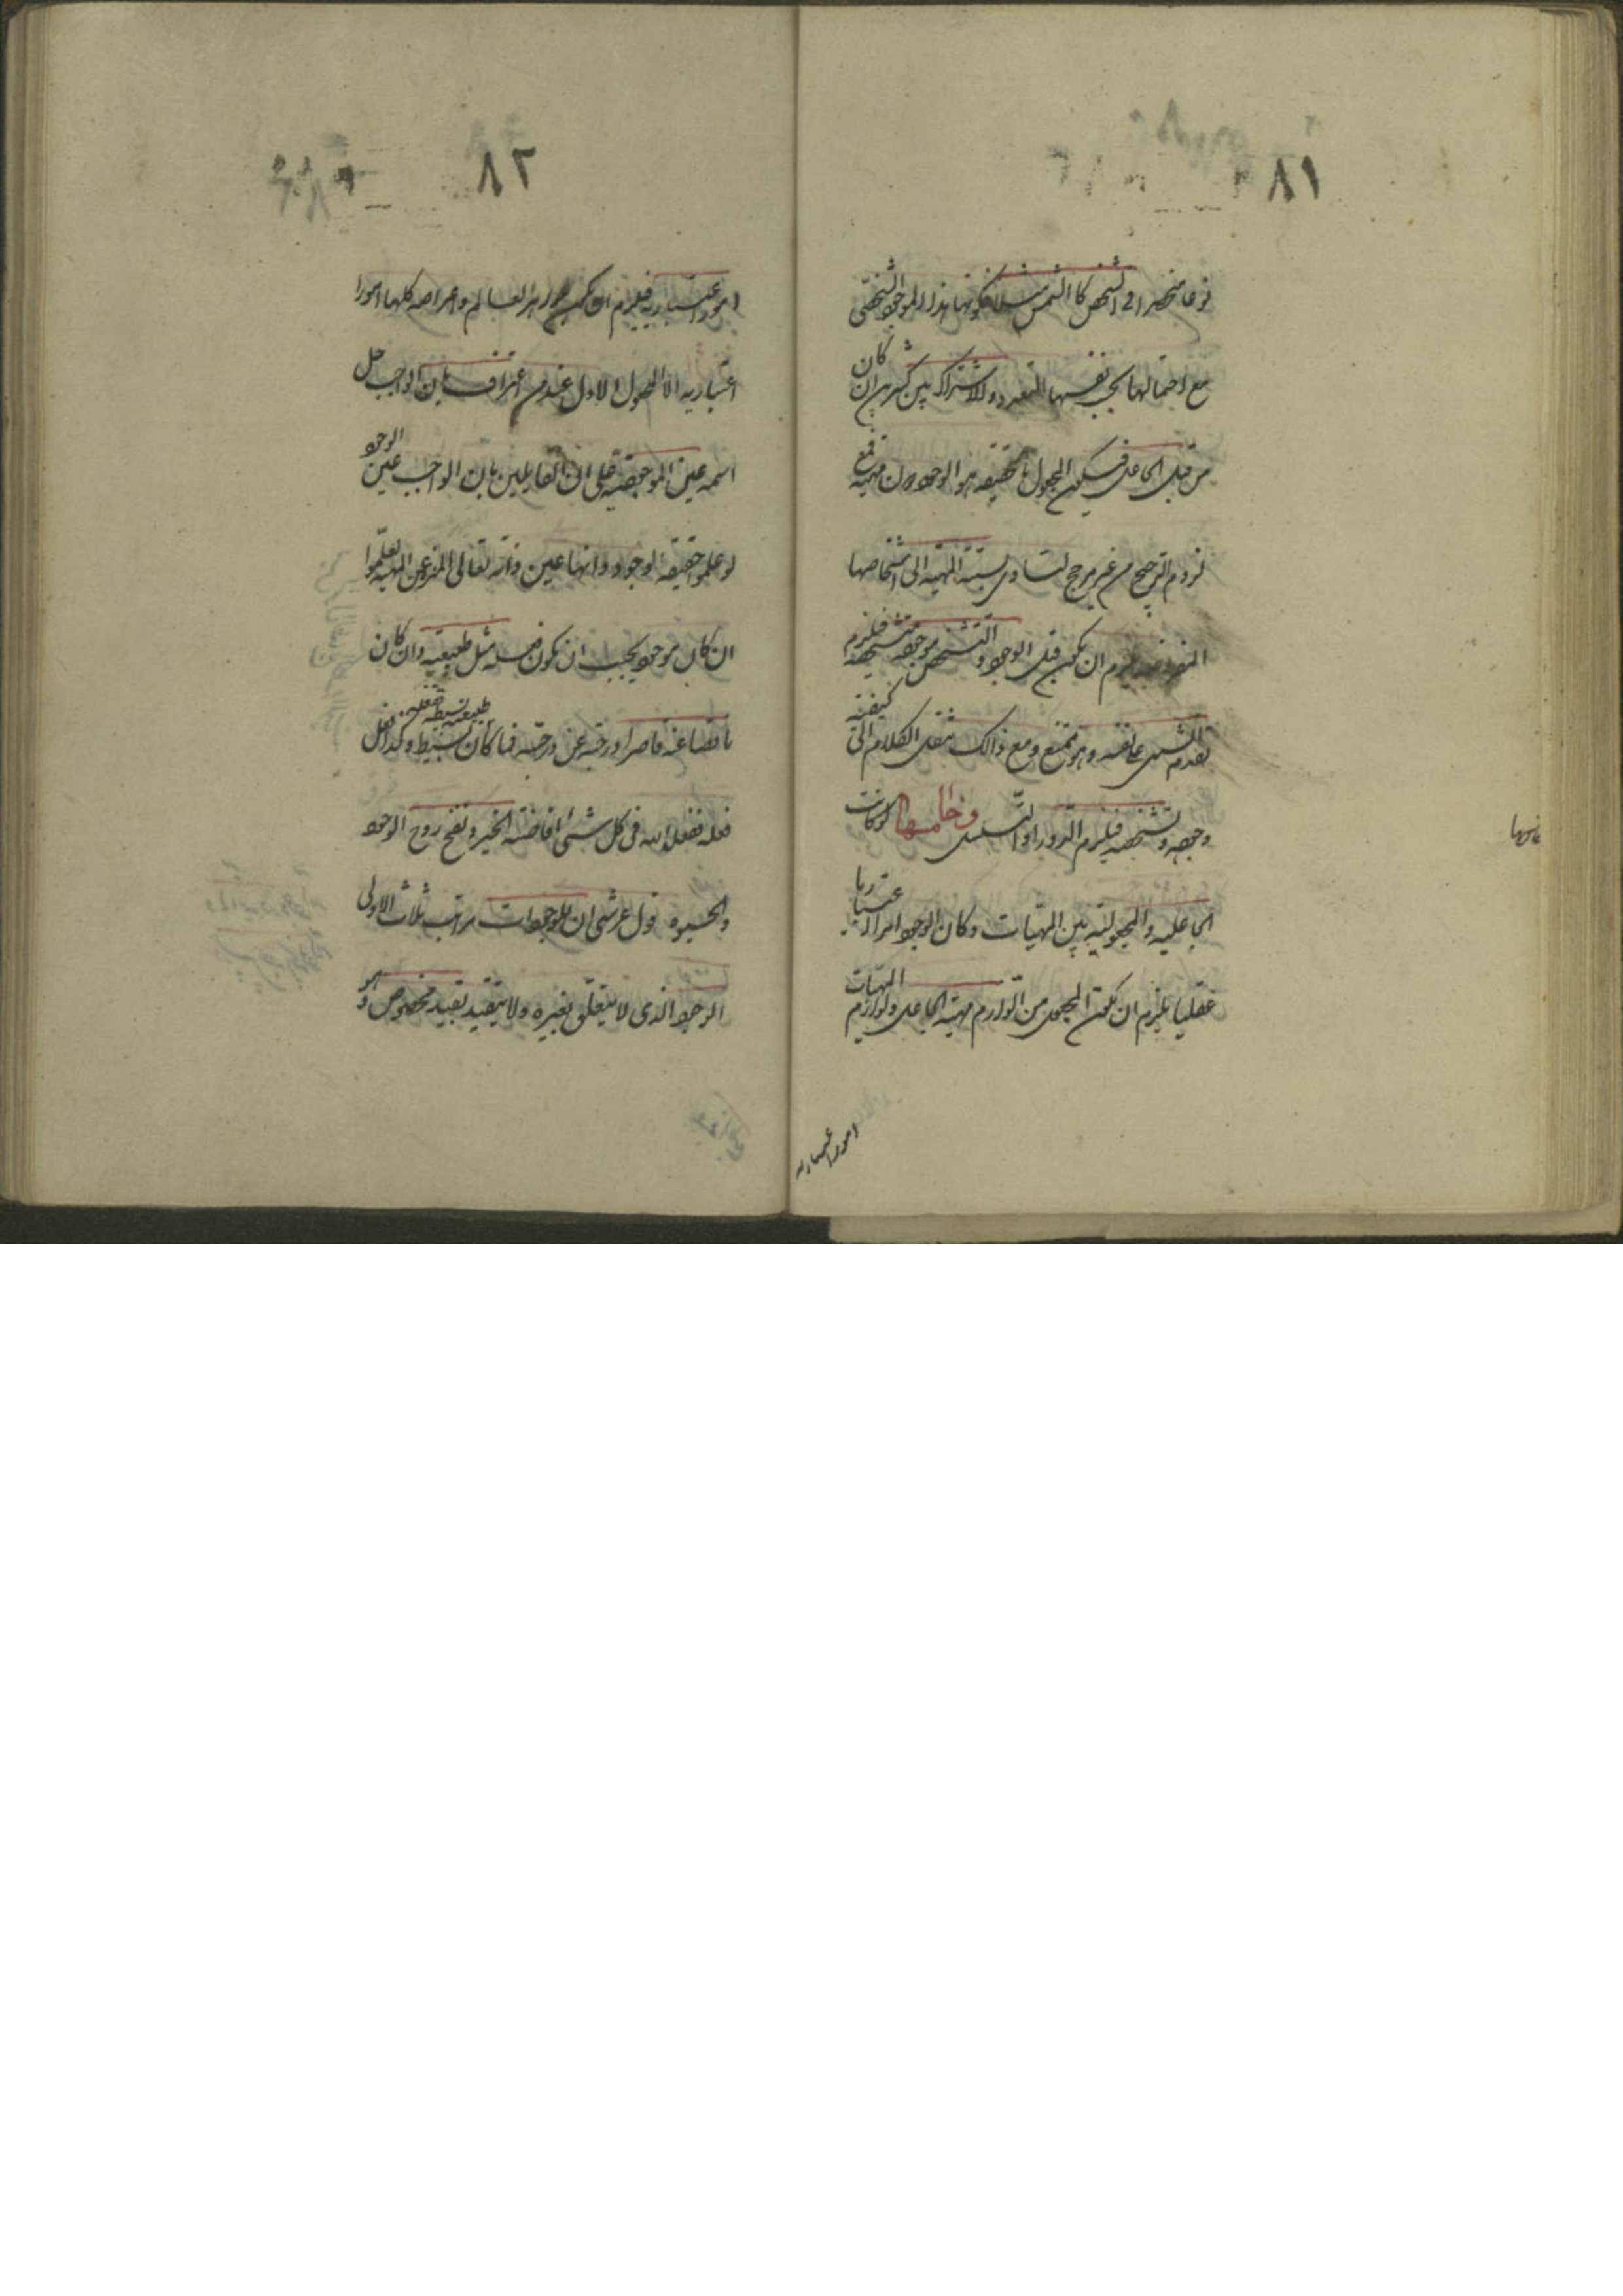 ٨١
نوعا منحصرا فی الشخص کا الشمس مثلا فکونها هذا الموجود الشخصی
مع احتمالها بحسب نفسها التعدد والاشتراک بین کثیرین ان کان
من قبل الجاعل فیکون المجعول بالحقیقه هو الوجود دون مهیة فمع
لزوم الترجیح من غیر مرجح لتساوی نسبته المهیه الی اشخاصها
المفروضه یلزم ان یکون قبل الوجود و التشخص موجوده متشخصه فیلزم
تقدم الشی علی نفسه وهو ممتنع ومع ذالک ننقل الکلام الی کیفیة
وجوده وتشخصه فیلزم الدور او التسلسل وخامسها لو کانت
الجاعلیه والمجعولیه بین المهیات وکان الوجود امرا اعتباریا
عقلیا یلزم ان یکون المجعول من الوازم مهیة الجاعل ولوازم المهیات
امور اعتباریه
٨٢
امور اعتباریه فیلزم ان یکون جواهر العالم واعراضه کلها امورا
اعتباریه الا المجعول الاول عند من اعترف بان الواجب جل
اسمه عین الموجودیه علی ان القایلین بان الواجب عین الوجود
لو علموا حقیقه الوجود وانها عین ذاته تعالی المنزه عن المهیه لعلموا
ان کل موجود یجب ان یکون فعله مثل طبیعته وان کان
ناقصا عنه قاصرا درجته عن درجته فما کان طبیعته بسیطه ففعله بسیط وکذا فعل
فعله ففعل الله فی کل شئ افاضته الخیر ونفخ روح الوجود
والحیوه قول عرشی ان للموجودات مراتب ثلاث الاولی
الوجود الذی لا یتعلق بغیره ولا یتقید بقید مخصوص وهو